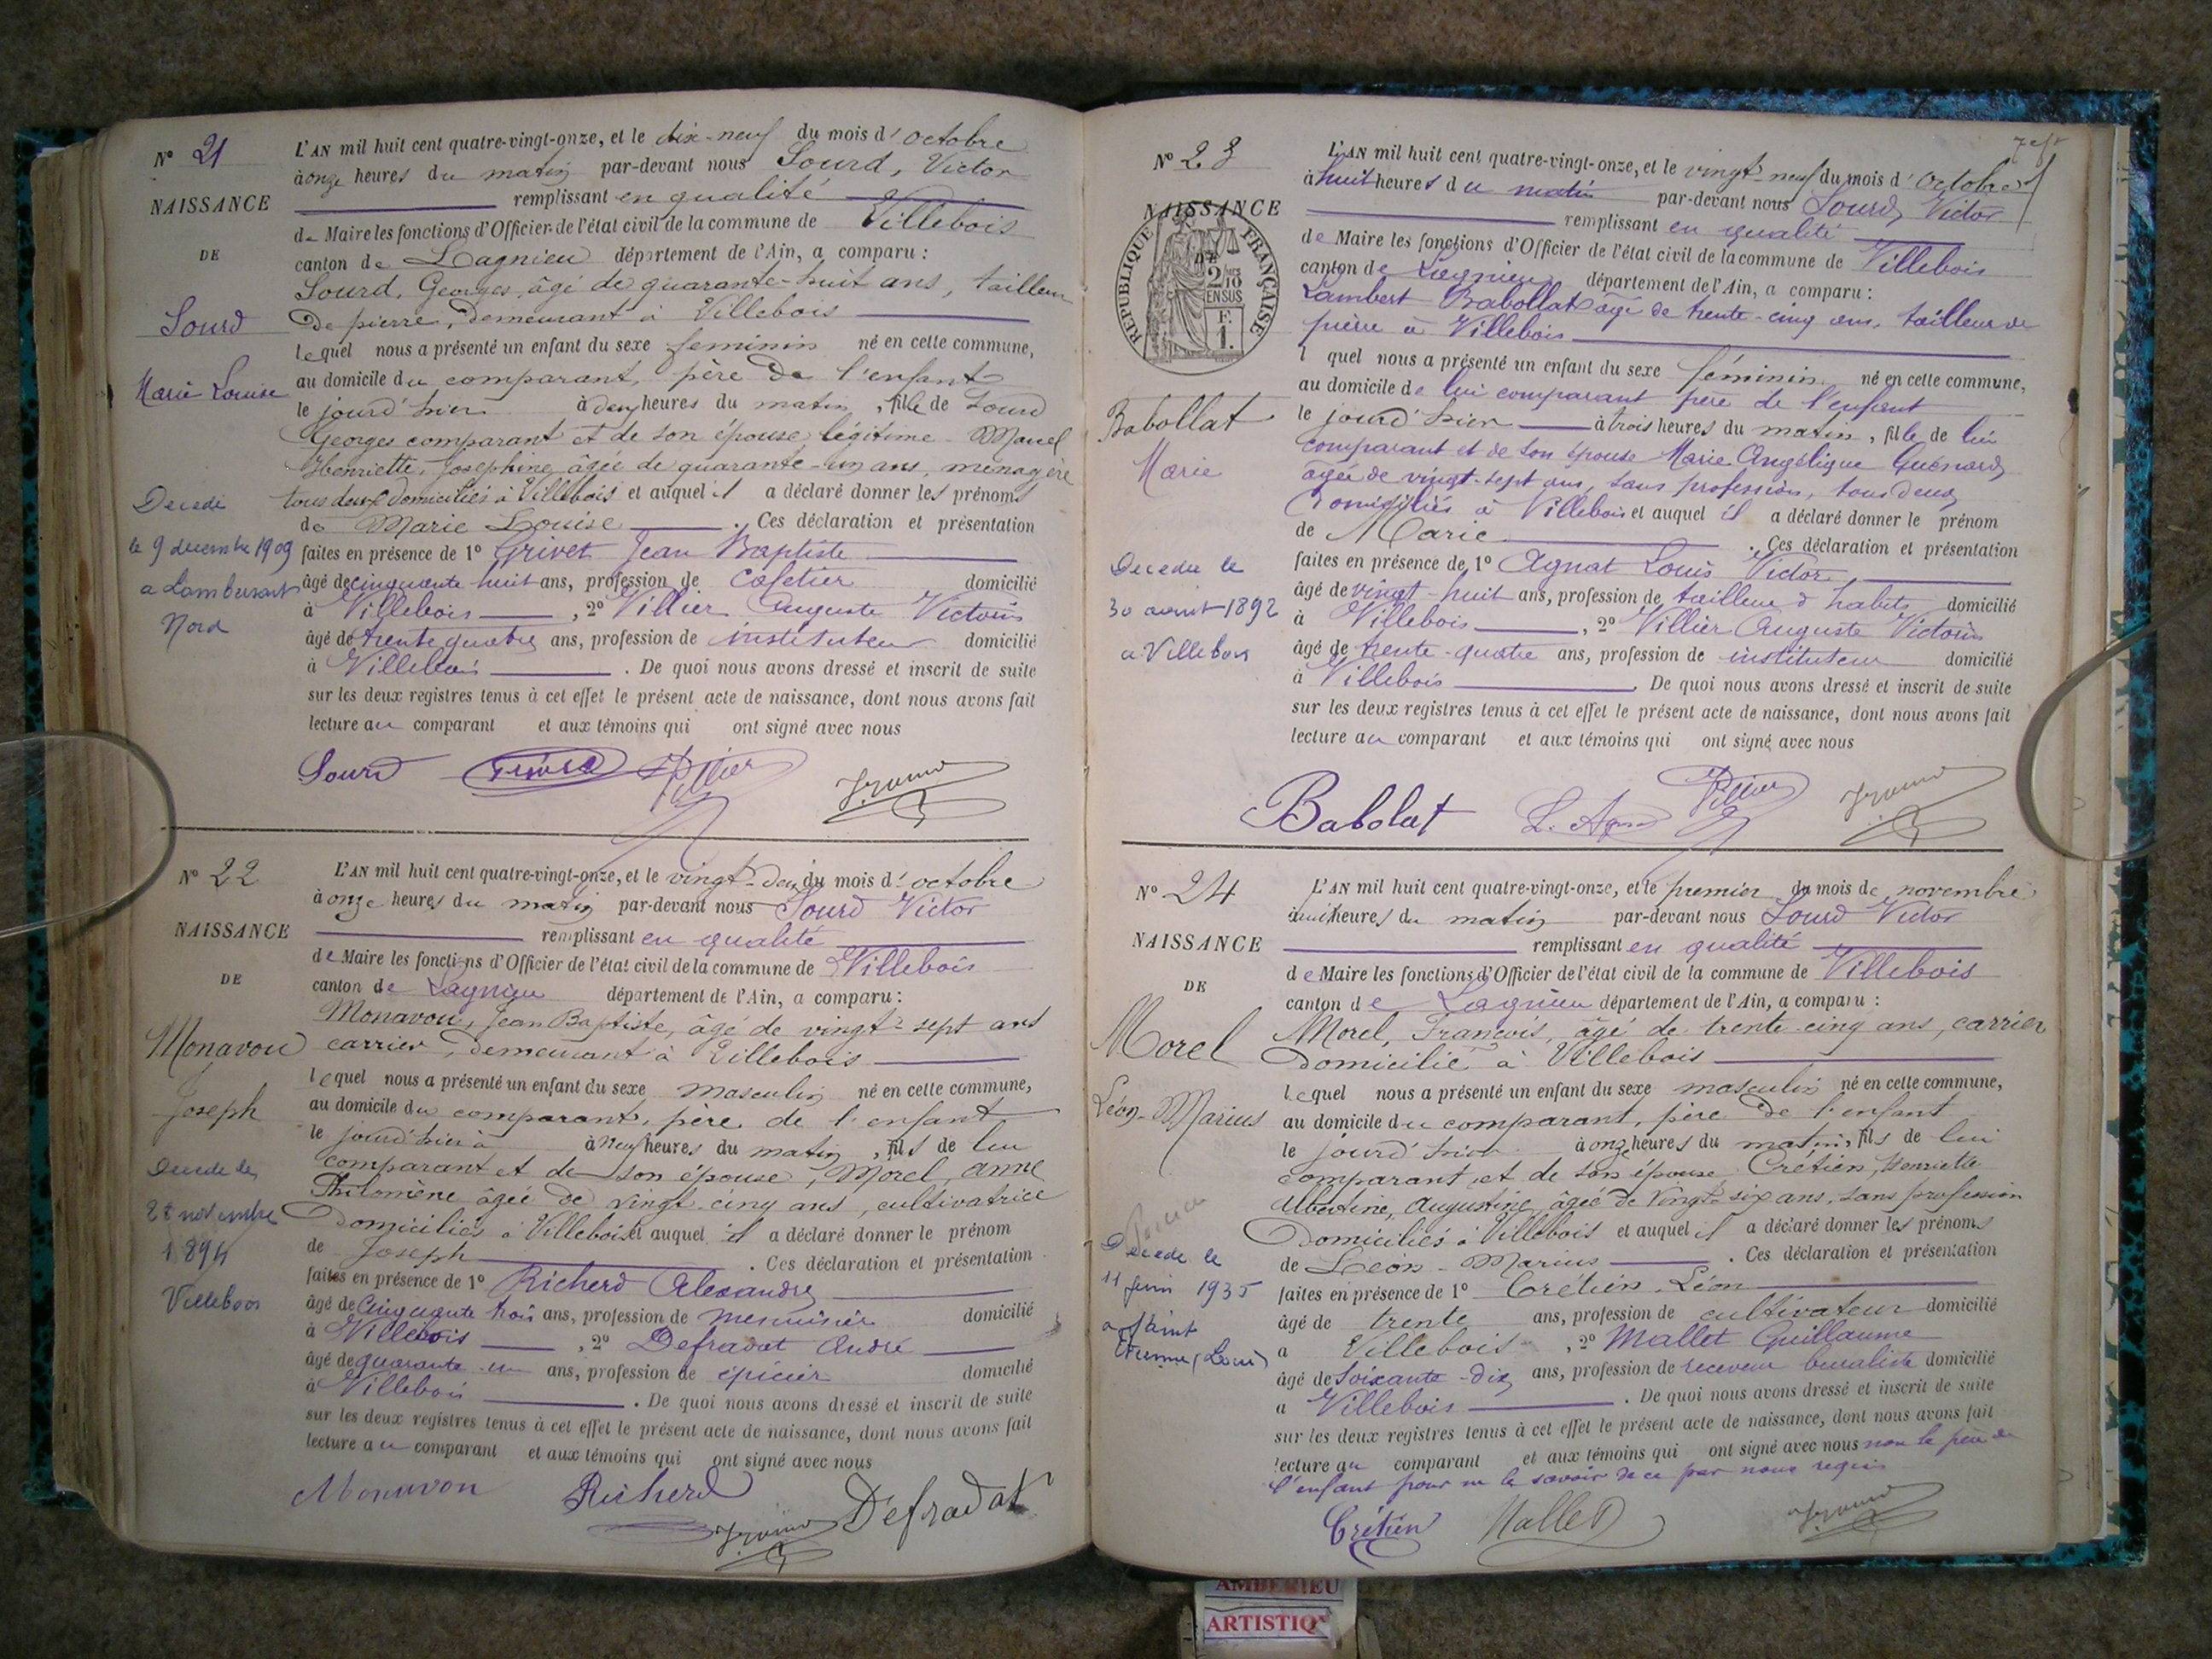 N° 21
NAISSANCE
DE
Sourd
Marie Louise
Decede
le 9 decembre 1909
a Lambersart
Nord
L'AN mil huit cent quatre-vingt-onze, et le dix-neuf du mois d'octobre
à onze heures du matin par-devant nous Sourd, Victor
remplissant en qualité
de Maire les fonctions d'Officier de l'état civil de la commune de Villebois
canton de Lagnieu département de l'Ain, a comparu :
Sourd, Georges, âgé de quarante-huit ans, tailleur
de pierre, demeurant à Villebois
lequel nous a présenté un enfant du sexe feminin né en cette commune,
au domicile du comparant, père de l'enfant
le jourd'hier à deux heures du matin, fille de Sourd
Georges comparant et de son épouse légitime Marcel
Henriette, Josephine, âgée de quarante-un ans, ménagère
tous deux domiciliés à Villebois et auquel il a déclaré donner les prénoms
de Marie Louise. Ces déclaration et présentation
faites en présence de 1° Grivet Jean Baptiste
âgé de cinquante huit ans, profession de cafetier domicilié
à Villebois, 2° Villier Auguste Victorin
âgé de trente quatre ans, profession de instituteur domicilié
à Villebois. De quoi nous avons dressé et inscrit de suite
sur les deux registres tenus à cet effet le présent acte de naissance, dont nous avons fait
lecture au comparant et aux témoins qui ont signé avec nous
Sourd Villier
N° 22
NAISSANCE
DE
Monavon
Joseph
Decede le
28 novembre
1894
Villebois
L'AN mil huit cent quatre-vingt-onze, et le vingt-deux du mois d'octobre
à onze heures du matin par-devant nous Sourd Victor
remplissant en qualité
de Maire les fonctions d'Officier de l'état civil de la commune de Villebois
canton de Lagnieu département de l'Ain, a comparu :
Monavon, Jean Baptiste, âgé de vingt-sept ans
carrier, demeurant à Villebois
lequel nous a présenté un enfant du sexe masculin né en cette commune,
au domicile du comparant, père de l'enfant
le jourd'hier à à neuf heures du matin, fils de lui
comparant et de son épouse, Morel, Anne
Philomène âgée de vingt-cinq ans, cultivatrice
Domiciliés à Villebois et auquel il a déclaré donner le prénom
de Joseph. Ces déclaration et présentation
faites en présence de 1° Richerd Alexandre
âgé de cinquante trois ans, profession de menuisier domicilié
à Villebois, 2° Defradat André
âgé de quarante-un ans, profession de épicier domicilié
à Villebois. De quoi nous avons dressé et inscrit de suite
sur les deux registres tenus à cet effet le présent acte de naissance, dont nous avons fait
lecture au comparant et aux témoins qui ont signé avec nous
Monavon Richerd Defradat
N° 23
NAISSANCE
DE
RÉPUBLIQUE FRANÇAISE
2/10 EN SUS
F. 1.
Babollat
Marie
Decedee le
30 aout 1892
a Villebois
L'AN mil huit cent quatre-vingt-onze, et le vingt-neuf du mois d'octobre
à huit heures du matin par-devant nous Sourd, Victor
remplissant en qualité
de Maire les fonctions d'Officier de l'état civil de la commune de Villebois
canton de Lagnieu département de l'Ain, a comparu :
Lambert Babollat âgé de trente-cinq ans, tailleur de
pierre à Villebois
l quel nous a présenté un enfant du sexe féminin né en cette commune,
au domicile de lui comparant père de l'enfant
le jourd'hier à trois heures du matin, fille de lui
comparant et de son épouse Marie Angélique Guénard,
âgée de vingt-sept ans, sans profession, tous deux
domiciliés à Villebois et auquel il a déclaré donner le prénom
de Marie. Ces déclaration et présentation
faites en présence de 1° Agnat Louis Victor
âgé de vingt-huit ans, profession de tailleur d'habits domicilié
à Villebois, 2° Villier Auguste Victorin
âgé de trente-quatre ans, profession de instituteur domicilié
à Villebois. De quoi nous avons dressé et inscrit de suite
sur les deux registres tenus à cet effet le présent acte de naissance, dont nous avons fait
lecture au comparant et aux témoins qui ont signé avec nous
Babolat L. Agnat Villier
N° 24
NAISSANCE
DE
Morel
Léon-Marius
Decede le
11 juin 1935
a Saint
Etienne (Loire)
L'AN mil huit cent quatre-vingt-onze, et le premier du mois de novembre
à huit heures du matin par-devant nous Sourd Victor
remplissant en qualité
de Maire les fonctions d'Officier de l'état civil de la commune de Villebois
canton de Lagnieu département de l'Ain, a comparu :
Morel, François, âgé de trente-cinq ans, carrier
Domicilié à Villebois
lequel nous a présenté un enfant du sexe masculin né en cette commune,
au domicile du comparant, père de l'enfant
le jourd'hier à onze heures du matin, fils de lui
comparant, et de son épouse, Crétien, Henriette
Albertine, Augustine, âgée de vingt-six ans, sans profession
Domiciliés à Villebois et auquel il a déclaré donner les prénoms
de Léon-Marius. Ces déclaration et présentation
faites en présence de 1° Crétien, Léon
âgé de trente ans, profession de cultivateur domicilié
a Villebois, 2° Mallet Guillaume
âgé de soixante-dix ans, profession de receveur buraliste domicilié
a Villebois. De quoi nous avons dressé et inscrit de suite
sur les deux registres tenus à cet effet le présent acte de naissance, dont nous avons fait
lecture au comparant et aux témoins qui ont signé avec nous non le père de
l'enfant pour ne le savoir de ce par nous requis
Crétien Mallet
AMBERIEU
ARTISTIQ